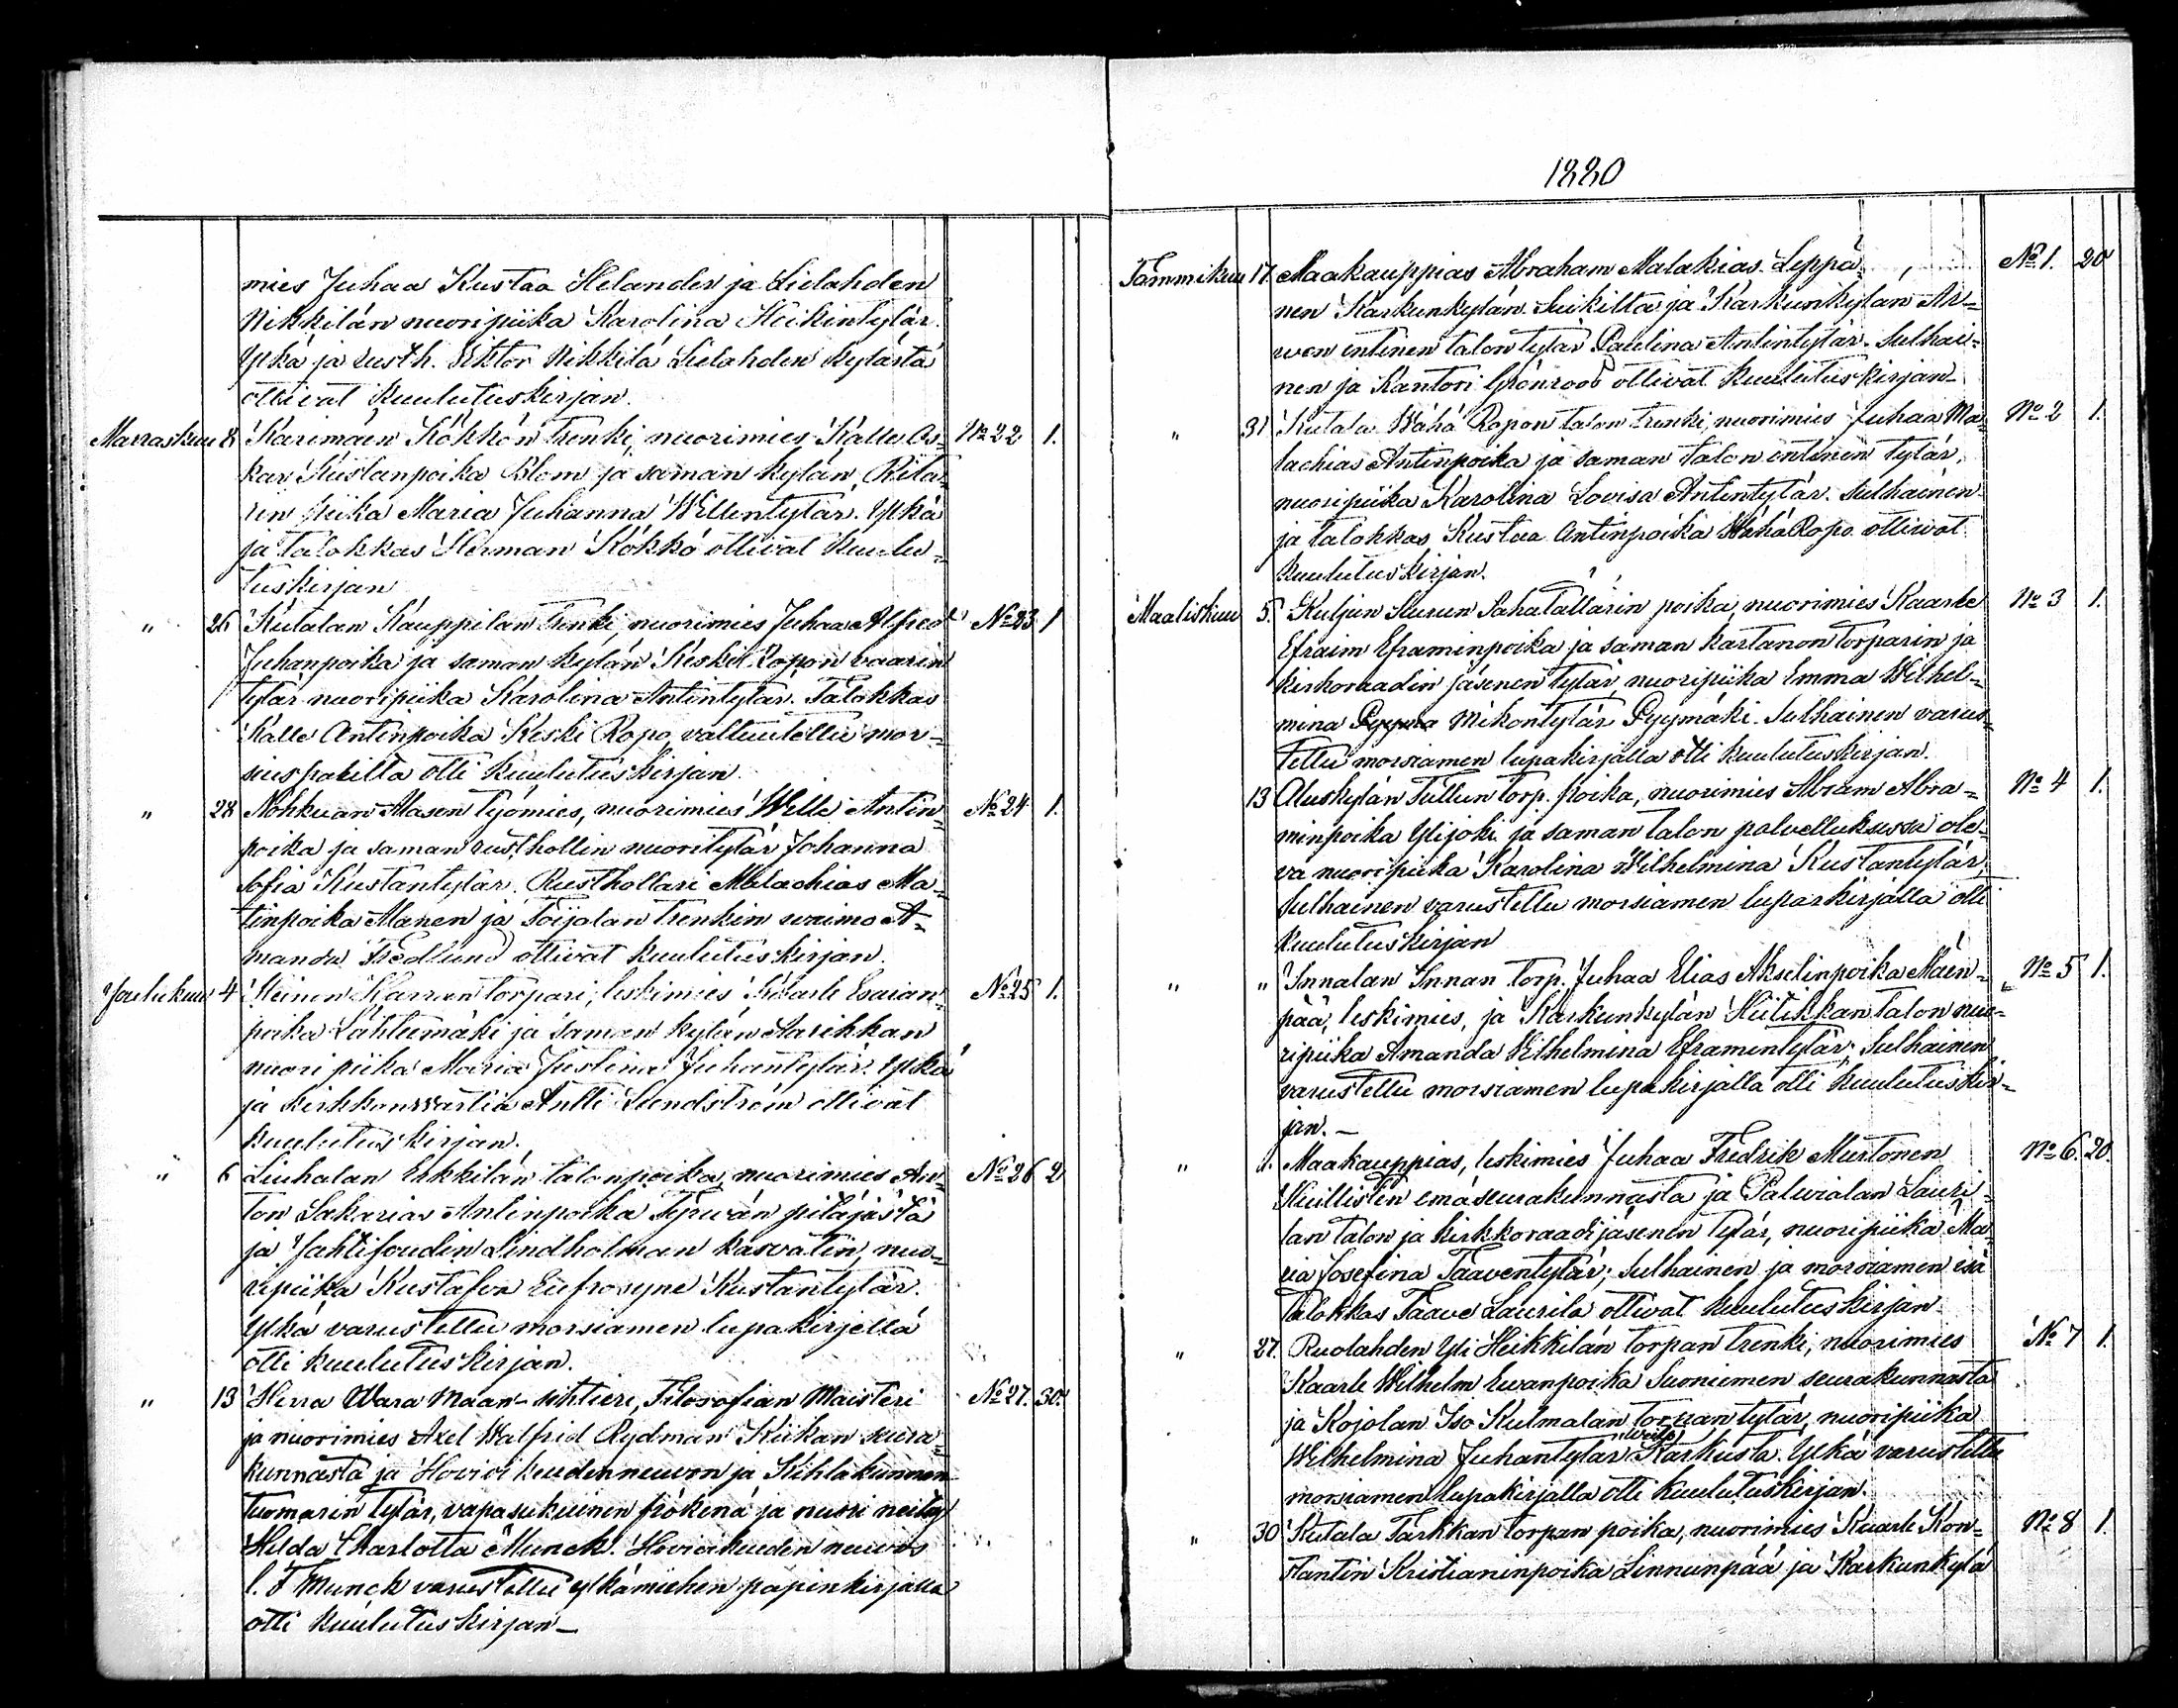 mies Juhaa Kustaa Helander ja Lielahden
Nikkilän nuoripiika Karolina Heikintytär.
Ylkä ja rusth. Viktor Nikkilä Lielahden kylästä
ottivat kuulutuskirjan.
Marraskuu 8 Karimäen Kökkön trenki, nuorimies Kalle Os- No 22 1.
kar Kustanpoika Blom ja saman kylän, Rita-
rin piika Maria Juhanna Willentytär. Ylkä
ja talokkas Herman Kökkö ottivat kuulu-
tuskirjan
" 26 Kutalan Kauppilan trenki, nuorimies Juhaa Alfred No 23 1
Juhanpoika ja saman kylän Keski Ropon vaarin
tytär nuoripiika Karolina Antintytär. Talokkas
Kalle Antinpoika Keski Ropo valtuutettu mor-
sius paitilta otti kuulutuskirjan.
" 28 Nohkuan Alasen työmies, nuorimies Wille Antin- No 24 1.
poika ja saman rusthollin nuoritytär Johanna
Sofia Kustantytär. Rusthollari Malachias Ma-
tinpoika Alanen ja Toijolan trenkin waimo A-
manda Fredlund ottivat kuulutuskirjan.
Joulukuu 4 Heinon Karran torpari, leskimies Kaarle Esaian- No 25 1.
poika Lähteenmäki ja saman kylän Aarikkan
nuori piika Maria Justina Juhantytär. Ylkä
ja kirkkonwartia Antti Lundström ottivat
kuulutus kirjan.
" 6 Liuhalan Erkkilän talonpoika, nuorimies An- No 26 2
ton Sakarias Antinpoika Tyrwän pitäjästä
ja Jahtifoudin Lindholman kasvatin, nuo-
ripiika Kustafva Eufrosyne Kustantytär.
Ylkä varustettu morsiamen lupakirjalla
otti kuulutuskirjan.
" 13 Herra Wara Maan-Wihtieri, Filosofian Maisteri No 27. 30.
ja nuorimies Axel Walfrid Rydman Kiikan seura-
kunnasta ja Hovioikeudenneuvon ja Kihlakunnan
tuomarin tytär, vapasukuinen fröökenä ja nuori neitsy
Hilda Charlotta Munck. Hovioikeuden neuvos
C. F. Munck varustettu ylkämiehen papinkirjalla
otti kuulutuskirjan-
1880
Tammikuu 17. Maakauppias Abraham Malakias Leppä- No 1. 20
nen Karkunkylän Suikilta ja Karkunkylän Ar-
wen entinen talon tytär Paulina Antintytär. Sulhai-
nen ja Kantori Grönroos ottivat kuulutuskirjan-
" 31 Kutala Wähä Ropon talon trenki, nuorimies Juhaa Ma- No 2 1.
lachias Antinpoika ja saman talon entinen tytär,
nuoripiika Karolina Lovisa Antintytär. Sulhainen
ja talokkas Kustaa Antinpoika Wähä Ropo ottivat
kuulutuskirjan.
Maaliskuu 5. Kuljun Kurun Sahatallarin poika, nuorimies Kaarle No 3 1.
Efraim Eframinpoika ja saman kartanon torparin ja
kirkoraadin jäsenen tytär, nuoripiika Emma Wilhel-
mina Pyyma Mikontytär Pyymäki. Sulhainen varus-
tettu morsiamen lupakirjalla otti kuulutuskirjan.
13 Aluskylän Tullun torp. poika, nuorimies Abram Abra- No 4 1.
minpoika Ylijoki ja saman talon palvelluksessa ole-
va nuoripiika Karolina Wilhelmina Kustantytär,
Sulhainen varustettu morsiamen luparkirjalla otti
kuulutuskirjan
" " Innalan Innan torp. Juhaa Elias Akselinpoika Mäen- No 5 1.
pää, leskimies, ja Karkunkylän Hiitikkan talon nuo-
ripiika Amanda Wilhelmina Eframintytär; Sulhainen
varustettu morsiamen lupakirjalla otti kuulutuskir-
jan.-
" " Maakauppias, leskimies Juhaa Fredrik Murtonen No 6. 20.
Huittisten emäseurakunnasta ja Palvialan Lauri-
lan talon ja kirkkoraadi jäsenen tytär, nuoripiika Ma-
ria Josefina Taaventytär; Sulhainen ja morsiamen isä
Talokkas Taave Laurila ottivat kuulutuskirjan.
" 27. Ruolahden Yli Heikkilän torpan trenki, nuorimies No 7 1.
Kaarle Wilhelm Ewanpoika Suoniemen seurakunnasta
ja Kojolan Iso Kulmalan torpan tytär, nuoripiika
Wilhelmina Juhantytär Karkusta. Ylkä varustettu
morsiamen lupakirjalla otti kuulutuskirjan.
" 30 Kutala Tarkkan torpan poika, nuorimies Kaarle Kon- No 8 1.
stantin Kristianinpoika Linnunpää ja Karkunkylä